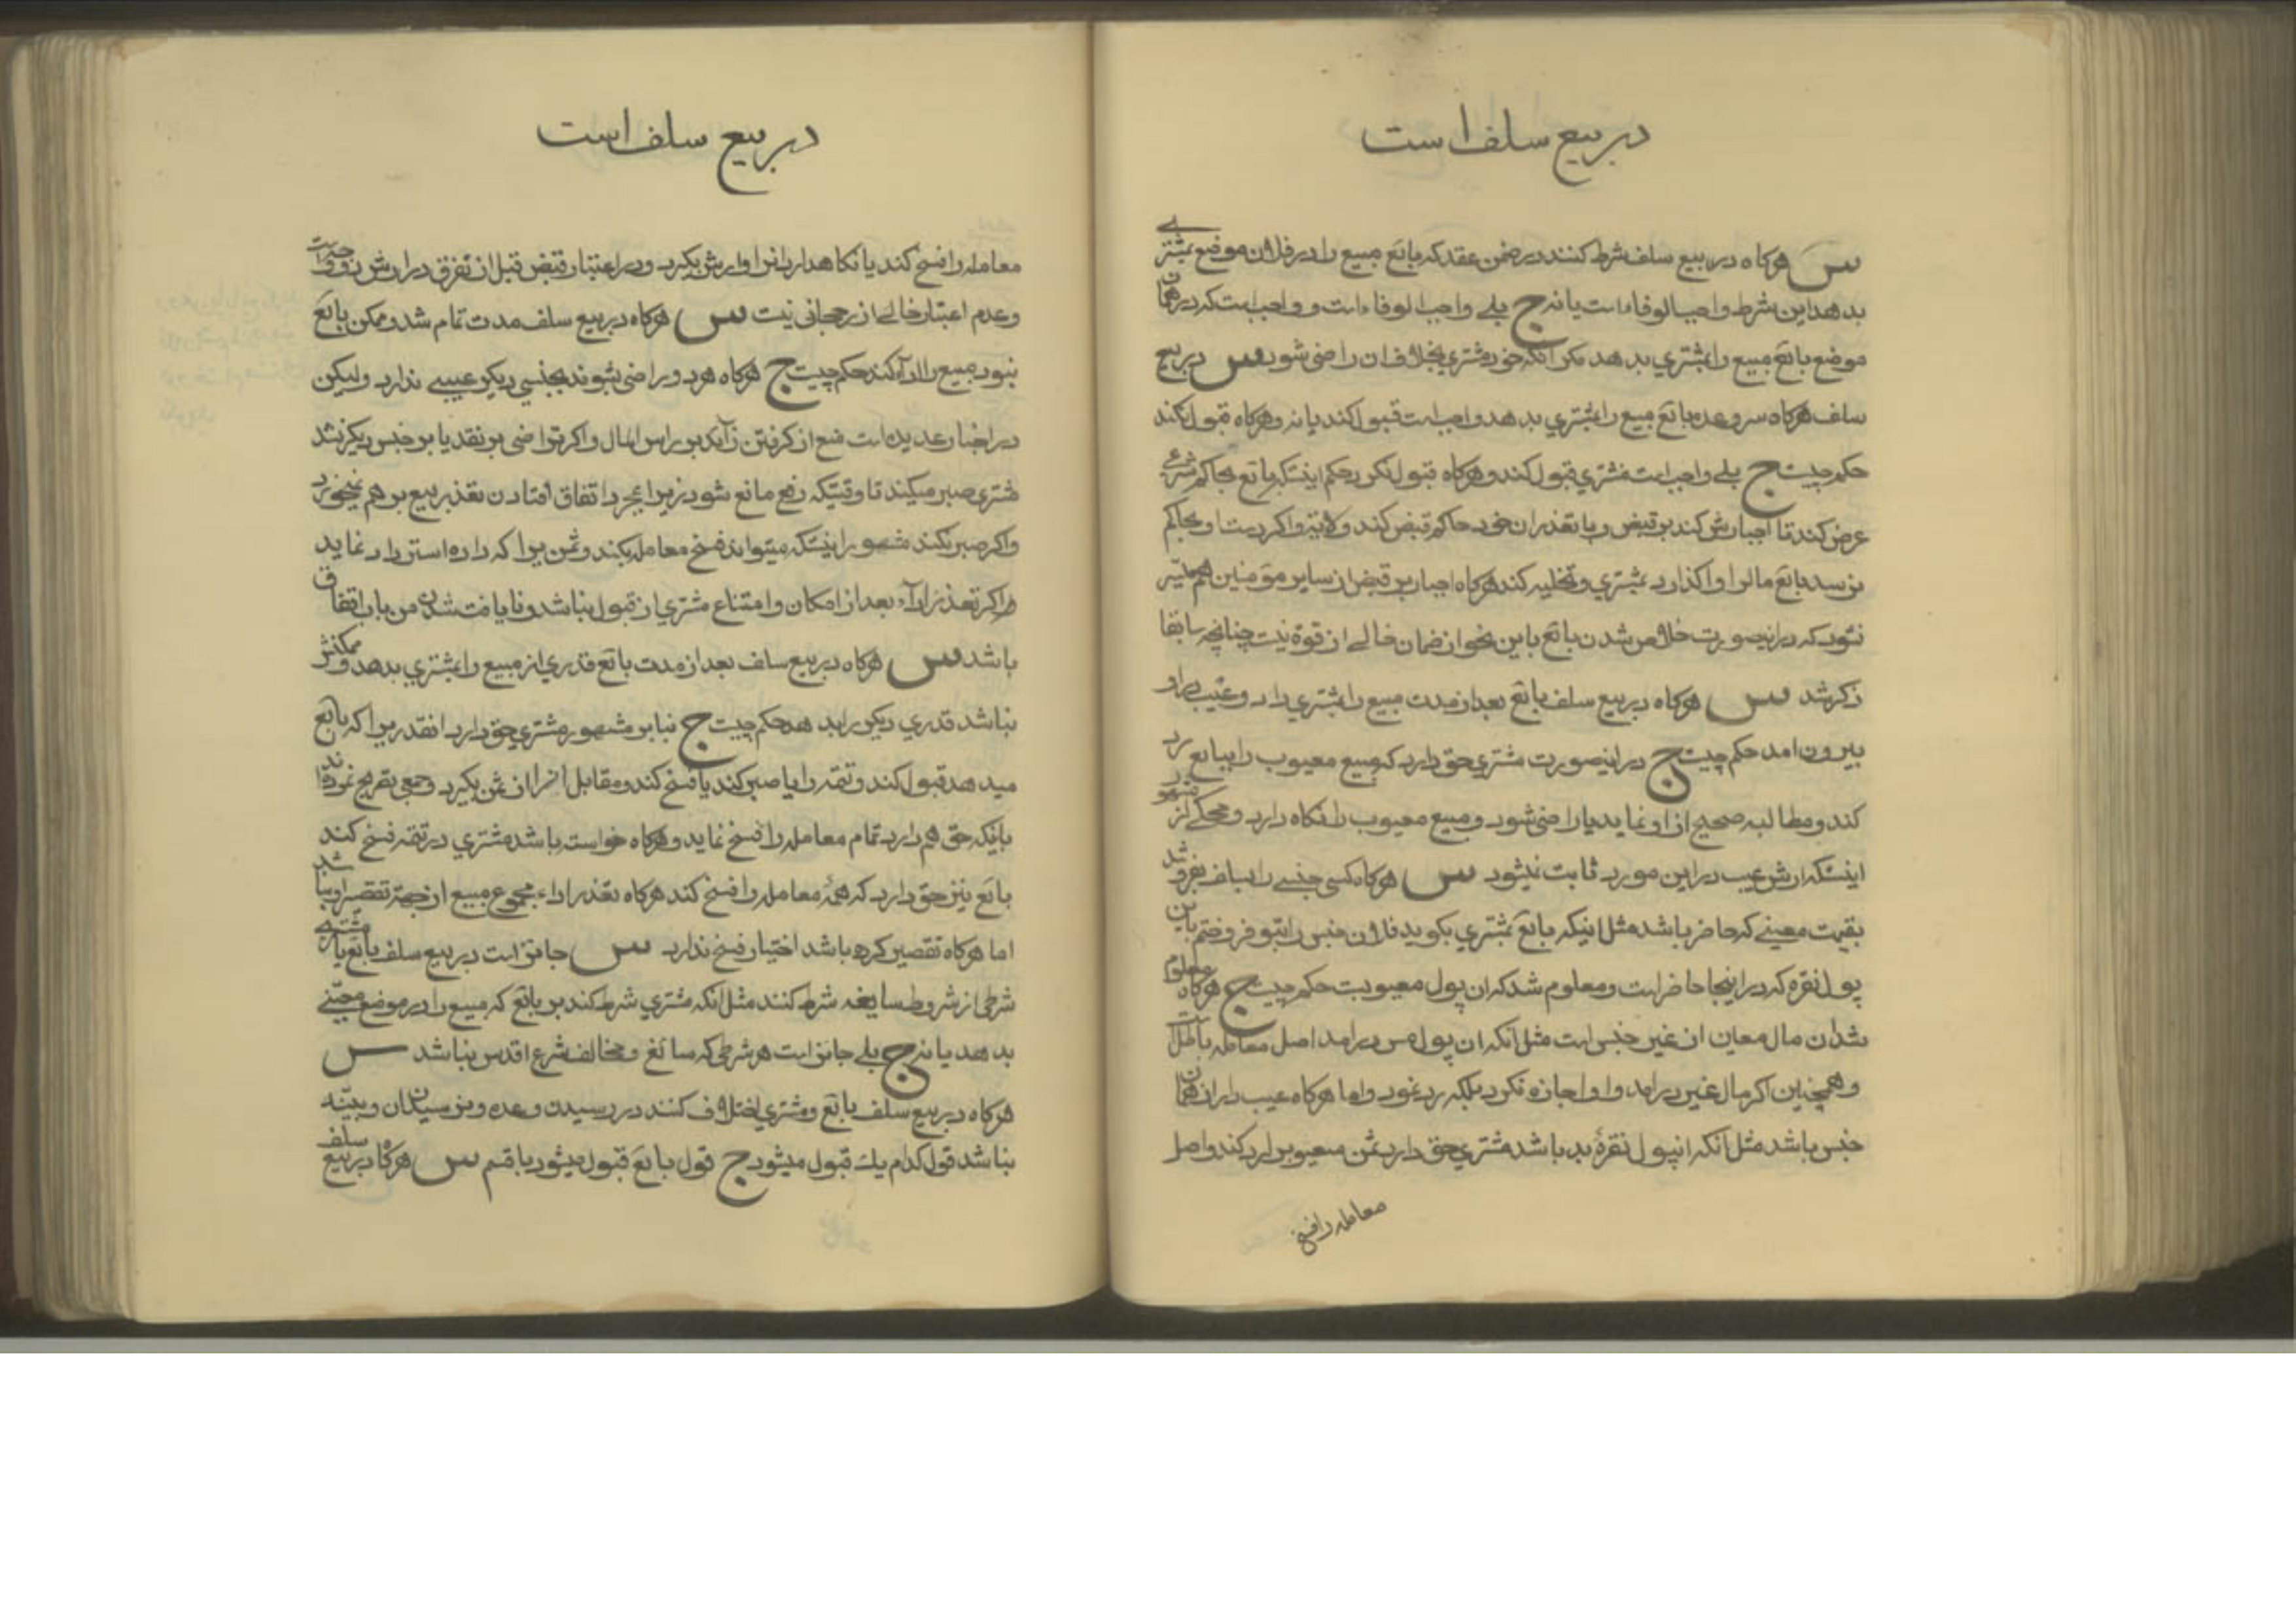 در بیع سلف است
س هرکاه در بیع سلف شرط کنند در ضمن عقد که بائع مبیع را در فلان موضع بمشتری
بدهد این شرط واجب الوفاء است یا نه ج بلی واجب الوفاء است و واجب است که در همان
موضع بائع مبیع را بمشتری بدهد مکر آنکه خود مشتری بخلاف ان راضی شود س در بیع
سلف هرکاه سر وعده بائع مبیع را بمشتری بدهد واجب است قبول کند یا نه و هرکاه قبول نکند
حکم چیست ج بلی واجب است مشتری قبول کند و هرکاه قبول نکرد حکم اینستکه بائع بحاکم شرع
عرض کند تا اجبارش کند بر قبض و با تعذر ان خود حاکم قبض کند ولایة و اکر دست او بحاکم
نرسد بائع مال را واکذارد بمشتری و تخلیه کند هرکاه اجبار بر قبض از سایر مؤمنین هم میسّر
نشود که در اینصورت خلاص شدن بائع باین نحو از ضمان خالی از قوة نیست چنانچه سابقا
ذکر شد س هرکاه در بیع سلف بائع بعد از مدت مبیع را بمشتری داد و عیب دار
بیرون امد حکم چیست ج در اینصورت مشتری حق دارد که مبیع معیوب را ببایع رد
کند و مطالبه صحیح از او نماید یا راضی شود و مبیع معیوب را نکاه دارد و محکی از مشهور
اینستکه ارش عیب در این مورد ثابت نیشود س هرکاه کسی جنسی را بسلف بفروشد
بقیمت معینی که حاضر باشد مثل اینکه بائع بمشتری بکوید فلان جنس را بتو فروختم باین
پول نقره که در اینجا حاضر است و معلوم شد که ان پول معیوبست حکم چیست ج هرکاه معلوم
شد ان مال معین از غیر جنس است مثل آنکه ان پول مس درامد اصل معامله باطل است
و همچنین اکر مال غیر درامد و او اجازه نکرد بلکه رد نمود و اما هرکاه عیب دار از همان
جنس باشد مثل آنکه انپول نقرهٔ بد باشد مشتری حق دارد ثمن معیوب را رد کند و اصل
معامله را فسخ
در بیع سلف است
معامله را فسخ کند یا نکاهدارد انرا و ارش بکیرد و در اعتبار قبض قبل از تفرق در ارش
وعدم اعتبار خالی از رجحانی نیست س هرکاه در بیع سلف مدت تمام شد و ممکن بائع
نبود مبیع را ادآء کند حکم چیست ج هرکاه هر دو راضی شوند بجنسی دیکر عیبی ندارد ولیکن
در اخبار عدیده است منع از کرفتن زآئد بر راس المال و اکر تراضی بر نقد یا بر جنس دیکر نشد
مشتری صبر میکند تا وقتیکه رفع مانع شود زیرا بمجرد اتفاق افتادن تعذر بیع بر هم نمیخورد
و اکر صبر نکند مشهور اینستکه میتواند فسخ معامله بکند و ثمن یرا که داده استرداد نماید
اکر تعذر ادآء بعد از امکان و امتناع مشتری از قبول نباشد و نایافت شدن من باب اتفاق
باشد س هرکاه در بیع سلف بعد از مدت بائع قدری از مبیع را بمشتری بدهد و ممکنش
نباشد قدری دیکر را بدهد حکم چیست ج بنا بر مشهور مشتری حق دارد انقدریرا که بائع
میدهد قبول کند و تتمه را یا صبر کند یا فسخ کند و مقابل انرا از ثمن بکیرد و جمعی تصریح نموده‌اند
باینکه حق هم دارد تمام معامله را فسخ نماید و هرکاه خواسته باشد مشتری در تتمه فسخ کند
بائع نیز حق دارد که همهٔ معامله را فسخ کند هرکاه تعذر اداء مجموع مبیع از جهة تقصیر او نباشد
اما هرکاه تقصیر کرده باشد اختیار فسخ ندارد س جائز است در بیع سلف بائع یا مشتری
شرطی از شروط سایغه شرط کنند مثل آنکه مشتری شرط کند بر بائع که مبیع را در موضع معیّنی
بدهد یا نه ج بلی جائز است هر شرطی که سائغ و مخالف شرع اقدس نباشد س
هرکاه در بیع سلف بائع و مشتری اختلاف کنند در رسیدن وعده و نرسیدن ان و بیّنه
نباشد قول کدام یك قبول میشود ج قول بائع قبول میشود با قسم س هرکاه در بیع سلف